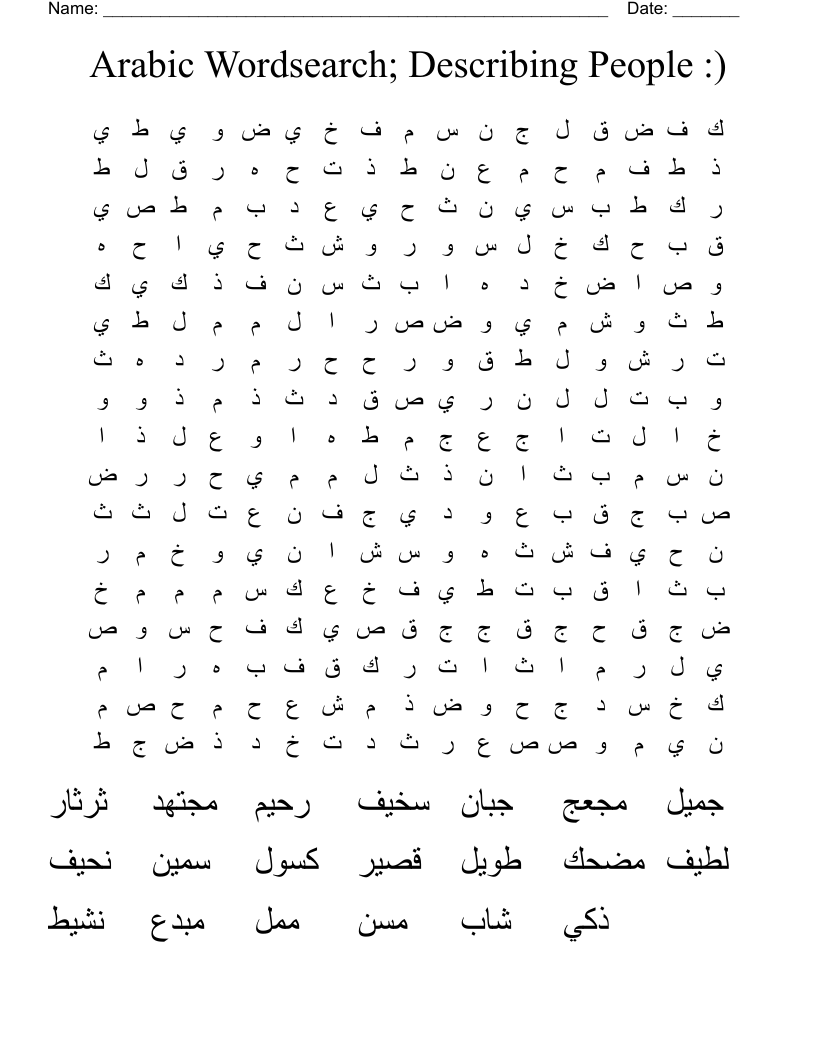 Name: ______________________________________________________ Date: _______
Arabic Wordsearch; Describing People :)
ك ف ض ق ل ج ن س م ف خ ي ض و ي ط ي
ذ ط ف م ح م ع ن ط ذ ت ح ه ر ق ل ط
ر ك ط ب س ي ن ث ح ي ع د ب م ط ص ي
ق ب ح ك خ ل س و ر و ش ث ح ي ا ح ه
و ص ا ض خ د ه ا ب ث س ن ف ذ ك ي ك
ط ث و ش م ي و ض ص ر ا ل م م ل ط ي
ت ر ش و ل ط ق و ر ح ح ر م ر د ه ث
و ب ت ل ل ن ر ي ص ق د ث ذ م ذ و و
خ ا ل ت ا ج ع ج م ط ه ا و ع ل ذ ا
ن س م ب ث ا ن ذ ث ل م م ي ح ر ر ض
ص ب ج ق ب ع و د ي ج ف ن ع ت ل ث ث
ن ح ي ف ش ث ه و س ش ا ن ي و خ م ر
ب ث ا ق ب ت ط ي ف خ ع ك س م م م خ
ض ج ق ح ج ق ج ج ق ص ي ك ف ح س و ص
ي ل ر م ا ث ا ت ر ك ق ف ب ه ر ا م
ك خ س د ج ح و ض ذ م ش ع ح م ح ص م
ن ي م و ص ص ع ر ث د ت خ د ذ ض ج ط
جميل مجعج جبان سخيف رحيم مجتهد ثرثار
لطيف مضحك طويل قصير كسول سمين نحيف
ذكي شاب مسن ممل مبدع نشيط